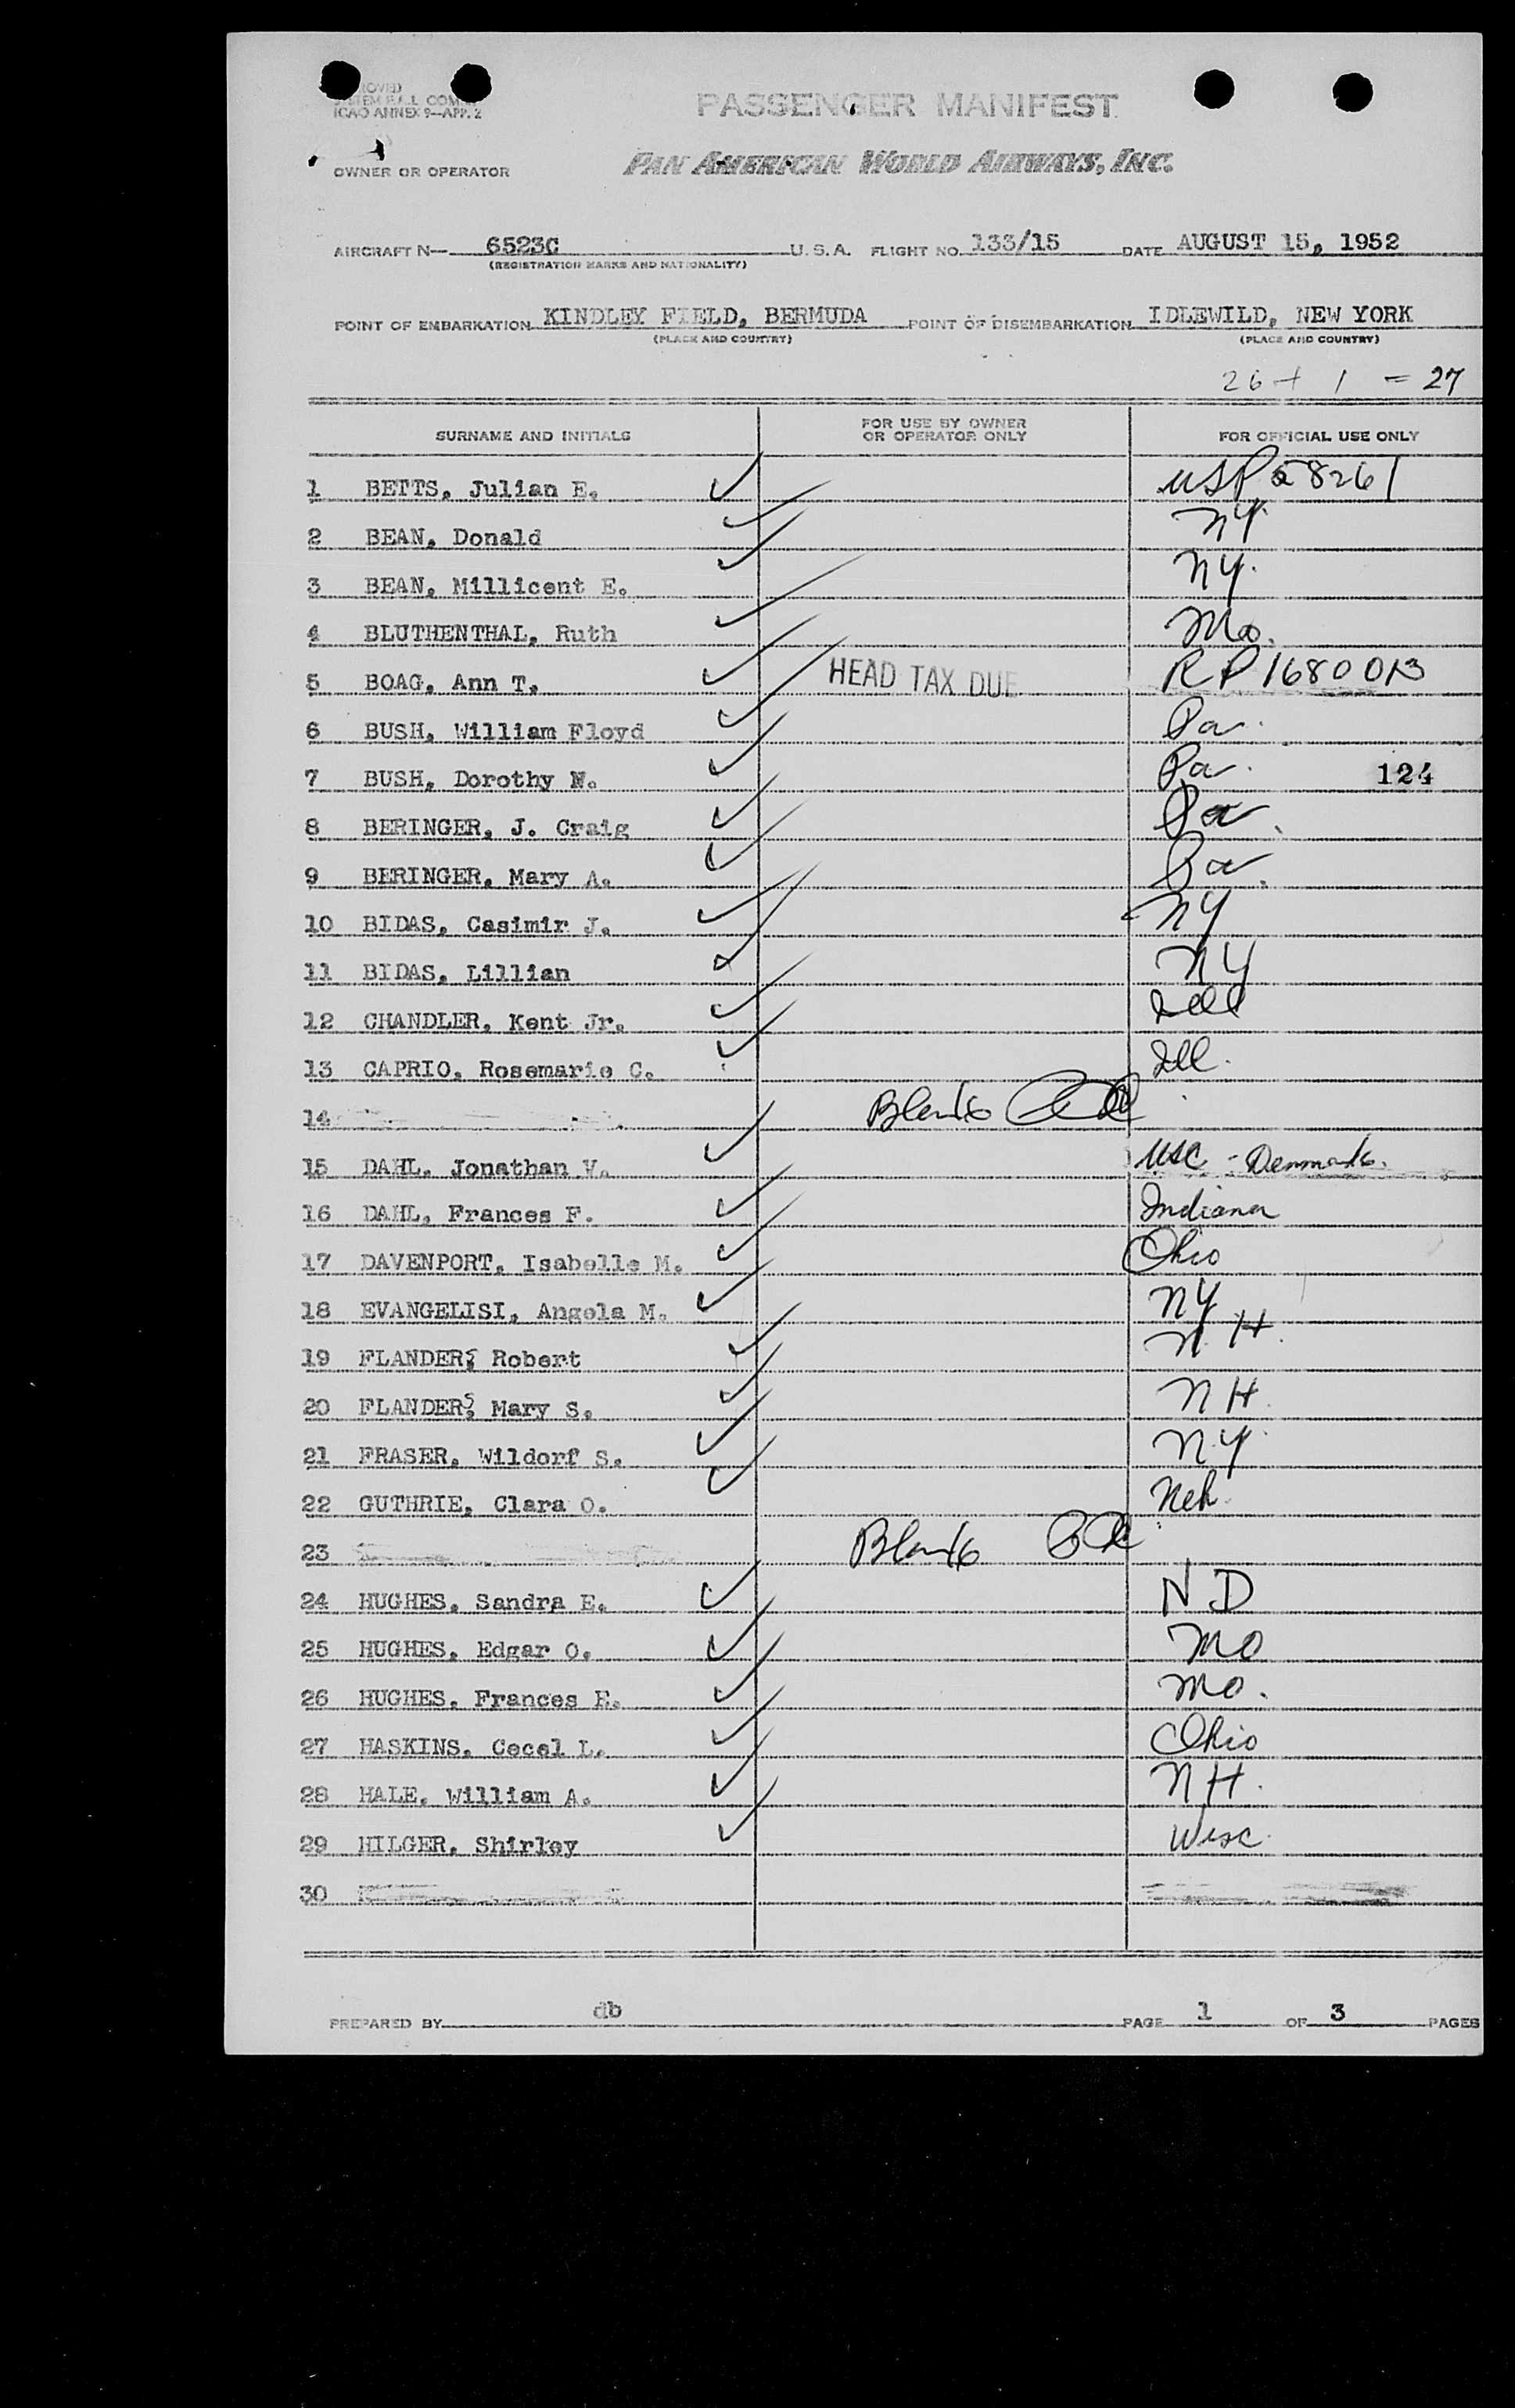 ICAO ANNEX 9—APP. 2
PASSENGER MANIFEST
OWNER OR OPERATOR
PAN AMERICAN WORLD AIRWAYS, INC.
AIRCRAFT N— 6523C U. S. A. FLIGHT NO. 133/15 DATE AUGUST 15, 1952
(REGISTRATION MARKS AND NATIONALITY)
POINT OF EMBARKATION KINDLEY FIELD, BERMUDA POINT OF DISEMBARKATION IDLEWILD, NEW YORK
(PLACE AND COUNTRY) (PLACE AND COUNTRY)
26 + 1 = 27
SURNAME AND INITIALS FOR USE BY OWNER OR OPERATOR ONLY FOR OFFICIAL USE ONLY
1 BETTS, Julian E. ✓ USP 58261
2 BEAN, Donald ✓ NY.
3 BEAN, Millicent E. ✓ NY.
4 BLUTHENTHAL, Ruth ✓ Mo.
5 BOAG, Ann T. ✓ HEAD TAX DUE RP 1680013
6 BUSH, William Floyd ✓ Pa.
7 BUSH, Dorothy N. ✓ Pa. 124
8 BERINGER, J. Craig ✓ Pa.
9 BERINGER, Mary A. ✓ Pa.
10 BIDAS, Casimir J. ✓ NY
11 BIDAS, Lillian ✓ NY
12 CHANDLER, Kent Jr. ✓ Ill
13 CAPRIO, Rosemarie C. ✓ Ill.
14 Blank
15 DAHL, Jonathan V. ✓ USC - Denmark.
16 DAHL, Frances F. ✓ Indiana
17 DAVENPORT, Isabelle M. ✓ Ohio
18 EVANGELISI, Angela M. ✓ NY
19 FLANDERS, Robert ✓ N. H.
20 FLANDERS, Mary S. ✓ N H.
21 FRASER, Wildorf S. ✓ N.Y.
22 GUTHRIE, Clara O. ✓ Neb.
23 Blank
24 HUGHES, Sandra E. ✓ N D
25 HUGHES, Edgar O. ✓ Mo
26 HUGHES, Frances E. ✓ Mo.
27 HASKINS, Cecel L. ✓ Ohio
28 HALE, William A. ✓ N H.
29 HILGER, Shirley ✓ Wisc.
30
PREPARED BY db PAGE 1 OF 3 PAGES